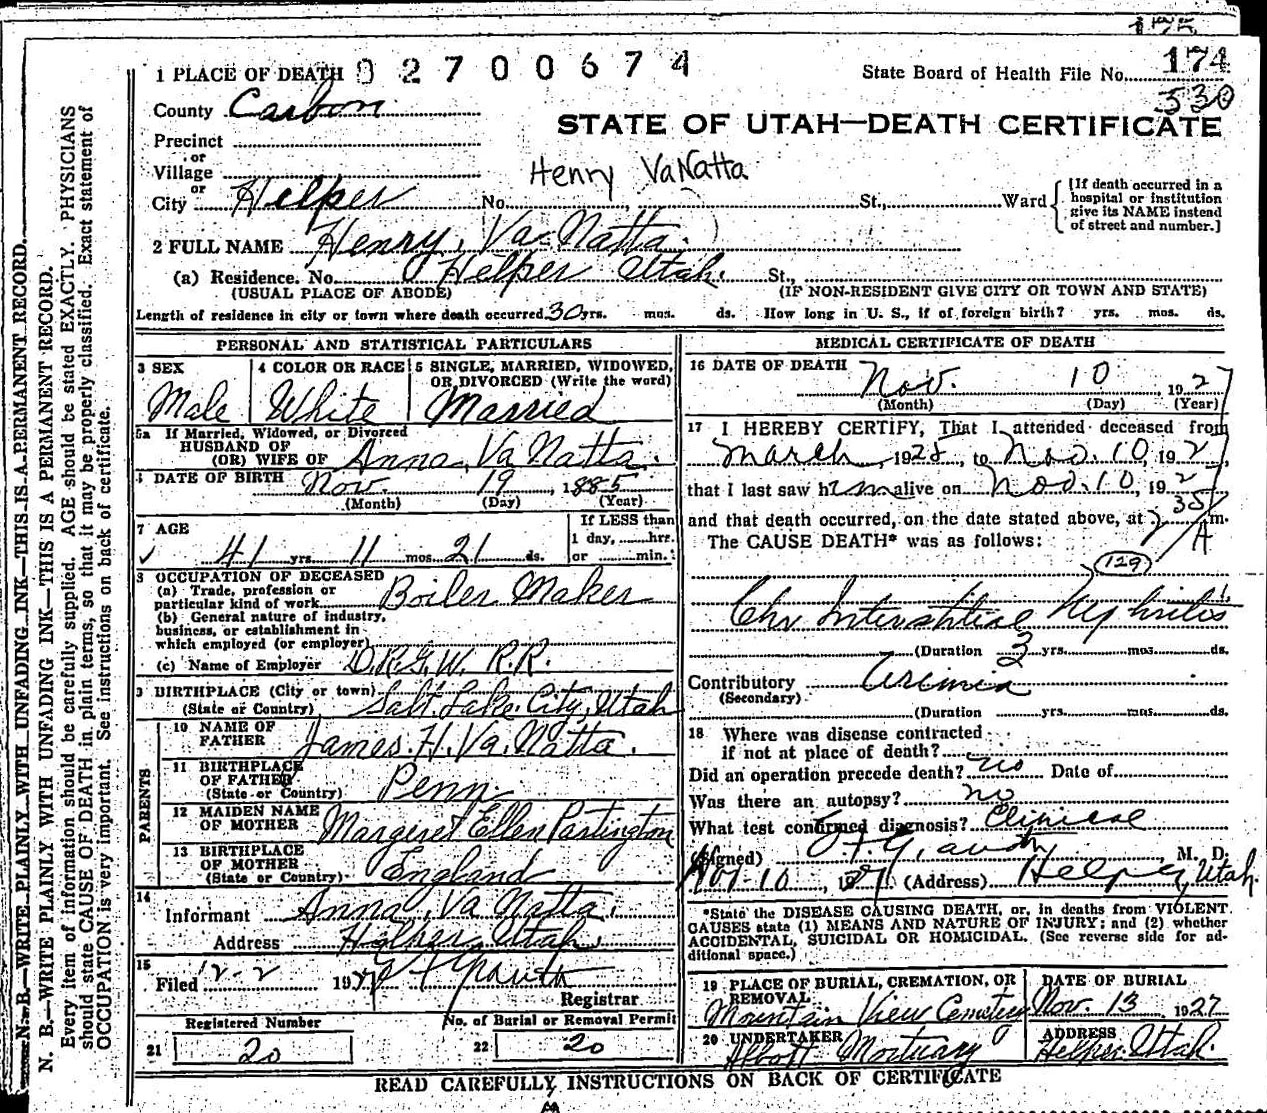 175
1 PLACE OF DEATH 02700674
State Board of Health File No. 174
530
County Carbon
STATE OF UTAH—DEATH CERTIFICATE
Precinct
or
Village
Henry VaNatta
or
City Helper No. St., Ward
[If death occurred in a hospital or institution give its NAME instead of street and number.]
2 FULL NAME Henry, Va Natta.
(a) Residence. No. Helper Utah. St.,
(USUAL PLACE OF ABODE) (IF NON-RESIDENT GIVE CITY OR TOWN AND STATE)
Length of residence in city or town where death occurred 30 yrs. mos. ds. How long in U. S., if of foreign birth? yrs. mos. ds.
PERSONAL AND STATISTICAL PARTICULARS
3 SEX 4 COLOR OR RACE 5 SINGLE, MARRIED, WIDOWED, OR DIVORCED (Write the word)
Male White Married
5a If Married, Widowed, or Divorced
HUSBAND OF
(OR) WIFE OF Anna, Va Natta.
6 DATE OF BIRTH Nov. 19, 1885
(Month) (Day) (Year)
7 AGE
If LESS than
1 day, hrs.
or min.
41 yrs. 11 mos. 21 ds.
8 OCCUPATION OF DECEASED
(a) Trade, profession or
particular kind of work Boiler Maker
(b) General nature of industry,
business, or establishment in
which employed (or employer)
(c) Name of Employer D.R.G.W. R.R.
9 BIRTHPLACE (City or town)
(State or Country) Salt Lake City, Utah
PARENTS
10 NAME OF
FATHER James. H. Va. Natta.
11 BIRTHPLACE
OF FATHER
(State or Country) Penn
12 MAIDEN NAME
OF MOTHER Margaret Ellen Partington
13 BIRTHPLACE
OF MOTHER
(State or Country) England
14
Informant Anna, Va Natta.
Address Helper, Utah.
15
Filed 12-2 192
Registrar
Registered Number No. of Burial or Removal Permit
21 20 22 20
MEDICAL CERTIFICATE OF DEATH
16 DATE OF DEATH Nov. 10, 1927
(Month) (Day) (Year)
17 I HEREBY CERTIFY, That I attended deceased from
March, 1925, to Nov. 10, 1927,
that I last saw him alive on Nov. 10, 1927
and that death occurred, on the date stated above, at 7 35/A m.
The CAUSE DEATH* was as follows:
129
Chr Interstitial Nephritis
(Duration 3 yrs. mos. ds.
Contributory Uremia
(Secondary)
(Duration yrs. mos. ds.
18 Where was disease contracted
if not at place of death?
Did an operation precede death? no Date of
Was there an autopsy? no
What test confirmed diagnosis? Clinical
(Signed) M. D.
Nov-10, 1927 (Address) Helper, Utah.
*State the DISEASE CAUSING DEATH, or, in deaths from VIOLENT
CAUSES state (1) MEANS AND NATURE OF INJURY; and (2) whether
ACCIDENTAL, SUICIDAL OR HOMICIDAL. (See reverse side for ad-
ditional space.)
19 PLACE OF BURIAL, CREMATION, OR REMOVAL DATE OF BURIAL
Mountain View Cemetery Nov. 13 1927
20 UNDERTAKER ADDRESS
Abbott Mortuary Helper. Utah.
READ CAREFULLY, INSTRUCTIONS ON BACK OF CERTIFICATE
N. B.—WRITE PLAINLY WITH UNFADING INK—THIS IS A PERMANENT RECORD.
N. B.—WRITE PLAINLY WITH UNFADING INK—THIS IS A PERMANENT RECORD.
Every item of information should be carefully supplied. AGE should be stated EXACTLY. PHYSICIANS
should state CAUSE OF DEATH in plain terms, so that it may be properly classified. Exact statement of
OCCUPATION is very important. See instructions on back of certificate.